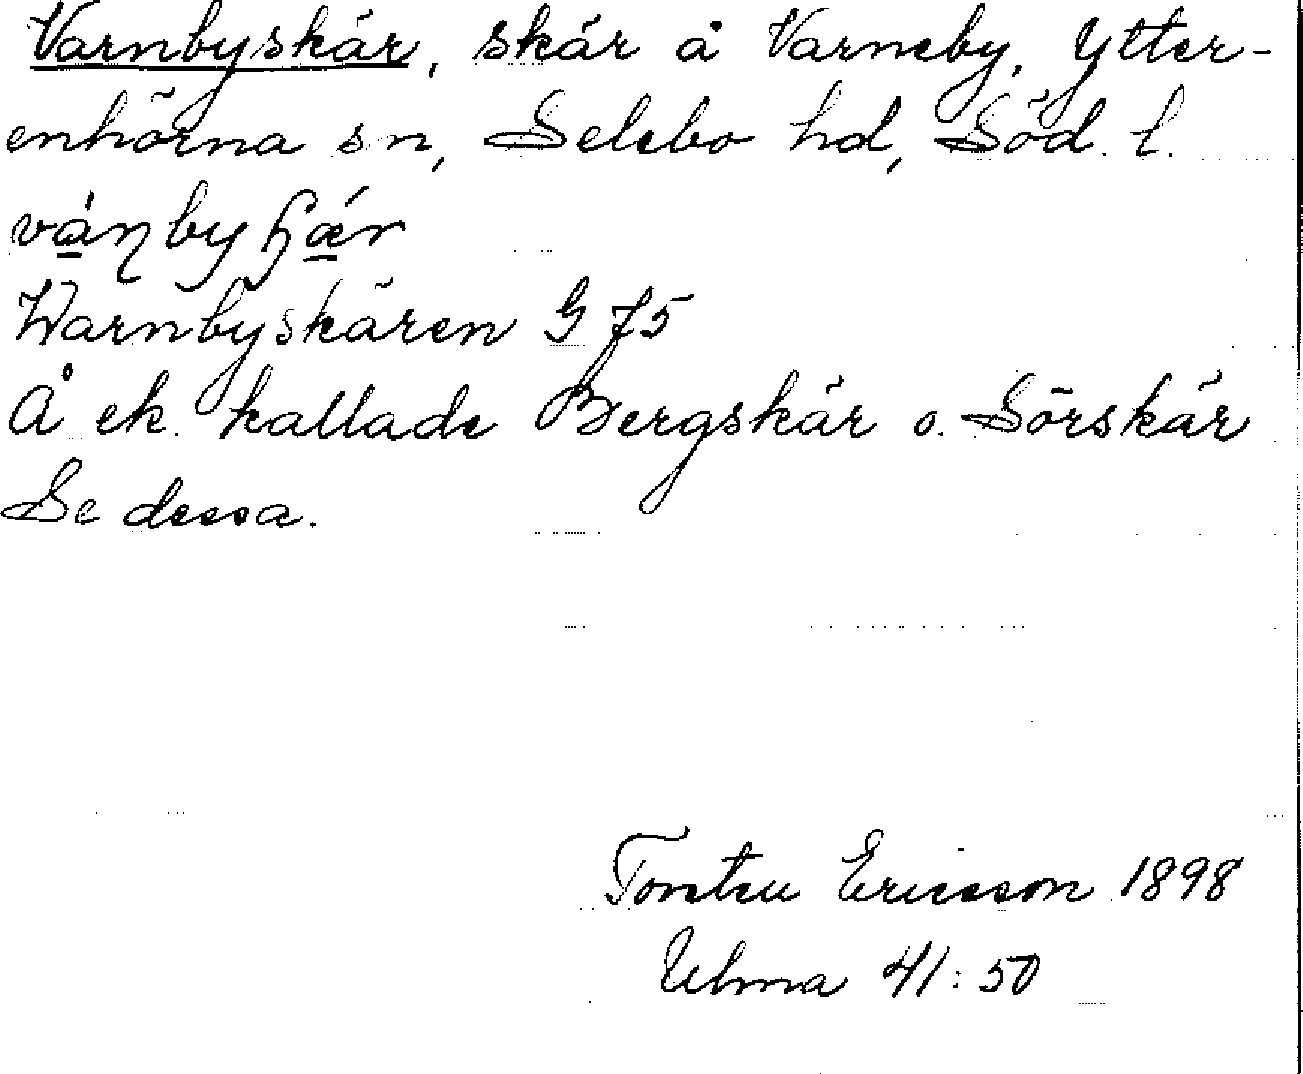 Varnbyskär, skär å Varneby, Ytter-
enhörna sn, Selebo hd, Söd. l.
Warnbyskären G 75
Å ek. kallade Bergskär o. Sörskär
Se dessa.
Torsten Ericsson 1898
Ulma 41:50